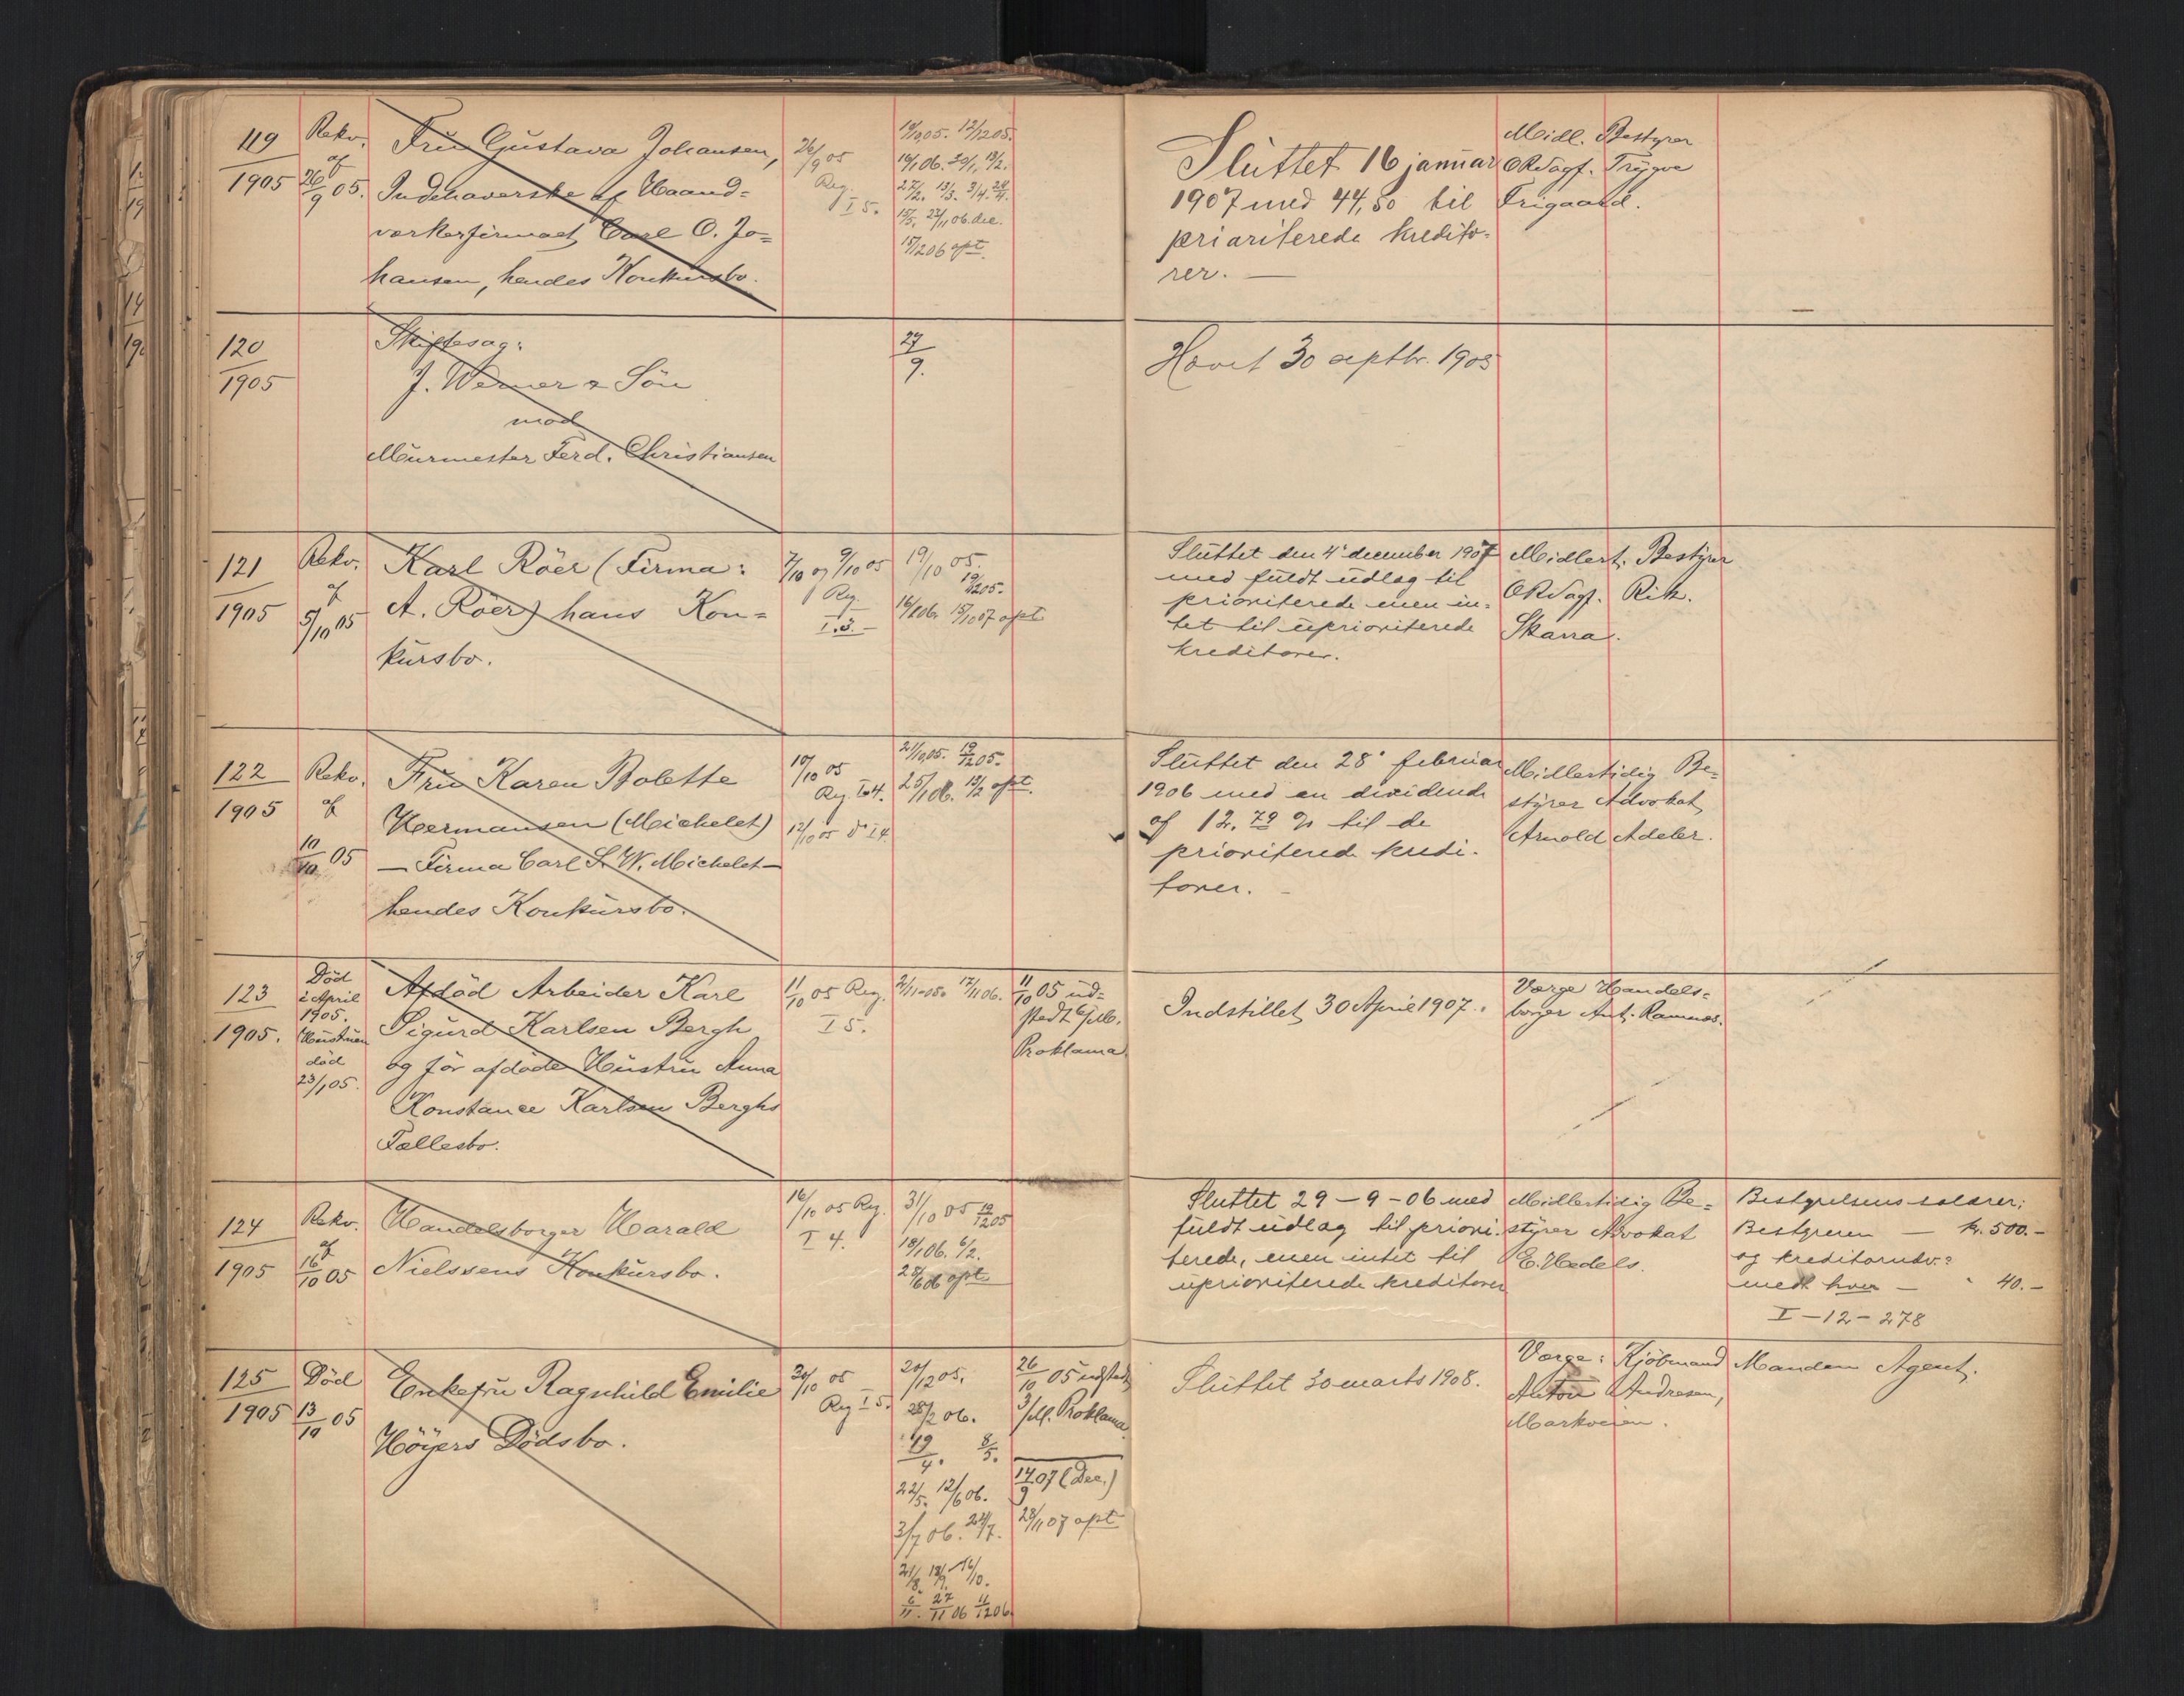 119
1905
Rekv.
af
26/9 05.
Fru Gustava Johansen,
Indehaverske af Haand-
værkerfirmaet Carl O. Jo-
hansen, hendes Konkursbo.
26/9 05
Reg.
I 5.
12/12 05.
16/1 06. 30/1, 13/2.
27/2. 13/3. 3/4. 24/4.
15/5. 27/11 06. dec.
15/12 06 opt.
Sluttet 16 januar
1907 med 44,50 til
prioriterede kredito-
rer. —
Midl. Bestyrer
ORSagf. Trygve
Frigaard.
120
1905
Skiftesag:
J. Werner & Sön
mod
Murmester Ferd. Christiansen
29/9.
Hævet 30 septbr. 1905
121
1905
Rekv.
af
5/10 05
Karl Röer (Firma:
A. Röer) hans Kon-
kursbo.
7/10 og 9/10 05
Reg.
I.3.—
19/10 05.
19/12 05.
16/1 06. 15/10 07 opt
Sluttet den 4' december 1907
med fuldt udlag til
prioriterede men in-
tet til uprioriterede
kreditorer.
Midlert. Bestyrer
ORSagf. Rik.
Skarra.
122
1905
Rekv.
af
10/10 05
Fru Karen Bolette
Hermansen (Michelet)
— Firma Carl S. W. Michelet —
hendes Konkursbo.
10/10 05
Reg. I 4.
12/10 05 do I 4.
21/10 05. 19/12 05.
25/1 06. 13/2 opt.
Sluttet den 28' februar
1906 med en dividende
af 12.79 % til de
prioriterede kredi-
torer. —
Midlertidig Be-
styrer Advokat
Arnold Adeler.
123
1905.
Död
2 April
1905.
Hustruen
död
23/1 05.
Afdöd Arbeider Karl
Sigurd Karlsen Bergh
og för afdöde Hustru Anna
Konstance Karlsen Berghs
Fællesbo.
11/10 05 Reg.
I 5.
11/10 05 ud-
stedt 6/M.
Proklama.
Indstillet 30 April 1907.
Værge Handels-
borger Ant. Ramnæs.
124
1905
Rekv.
af
16/10 05
Handelsborger Harald
Nielssens Konkursbo.
16/10 05 Reg.
I 4.
31/10 05 19/12 05
18/1 06. 6/2.
25/6 06 opt.
Sluttet 29-9-06 med
fuldt udlag til priori-
terede, men intet til
uprioriterede kreditorer
Midlertidig Be-
styrer Advokat
E. Hedels.
Bestyrelsens salærer:
Bestyreren — kr. 500.-
og kreditorudv.=
medl. hver — " 40.-
I-12-278
125
1905
Död
13/10 05
Enkefru Ragnhild Emilie
Höyers Dödsbo.
20/10 05
Reg I 5.
20/12 05.
28/2 06.
19/4. 8/5.
22/5. 12/6 06.
3/7 06. 24/7.
21/8. 18/9. 16/10.
6/11. 27/11 06 11/12 06.
26/10 05 udstedt
3/M. Proklama.
17/9 07 (Dec.)
28/11 07 opt
Sluttet 30 marts 1908.
Værge: Kjöbmand
Anton Andresen,
Markveien.
Manden Agent.